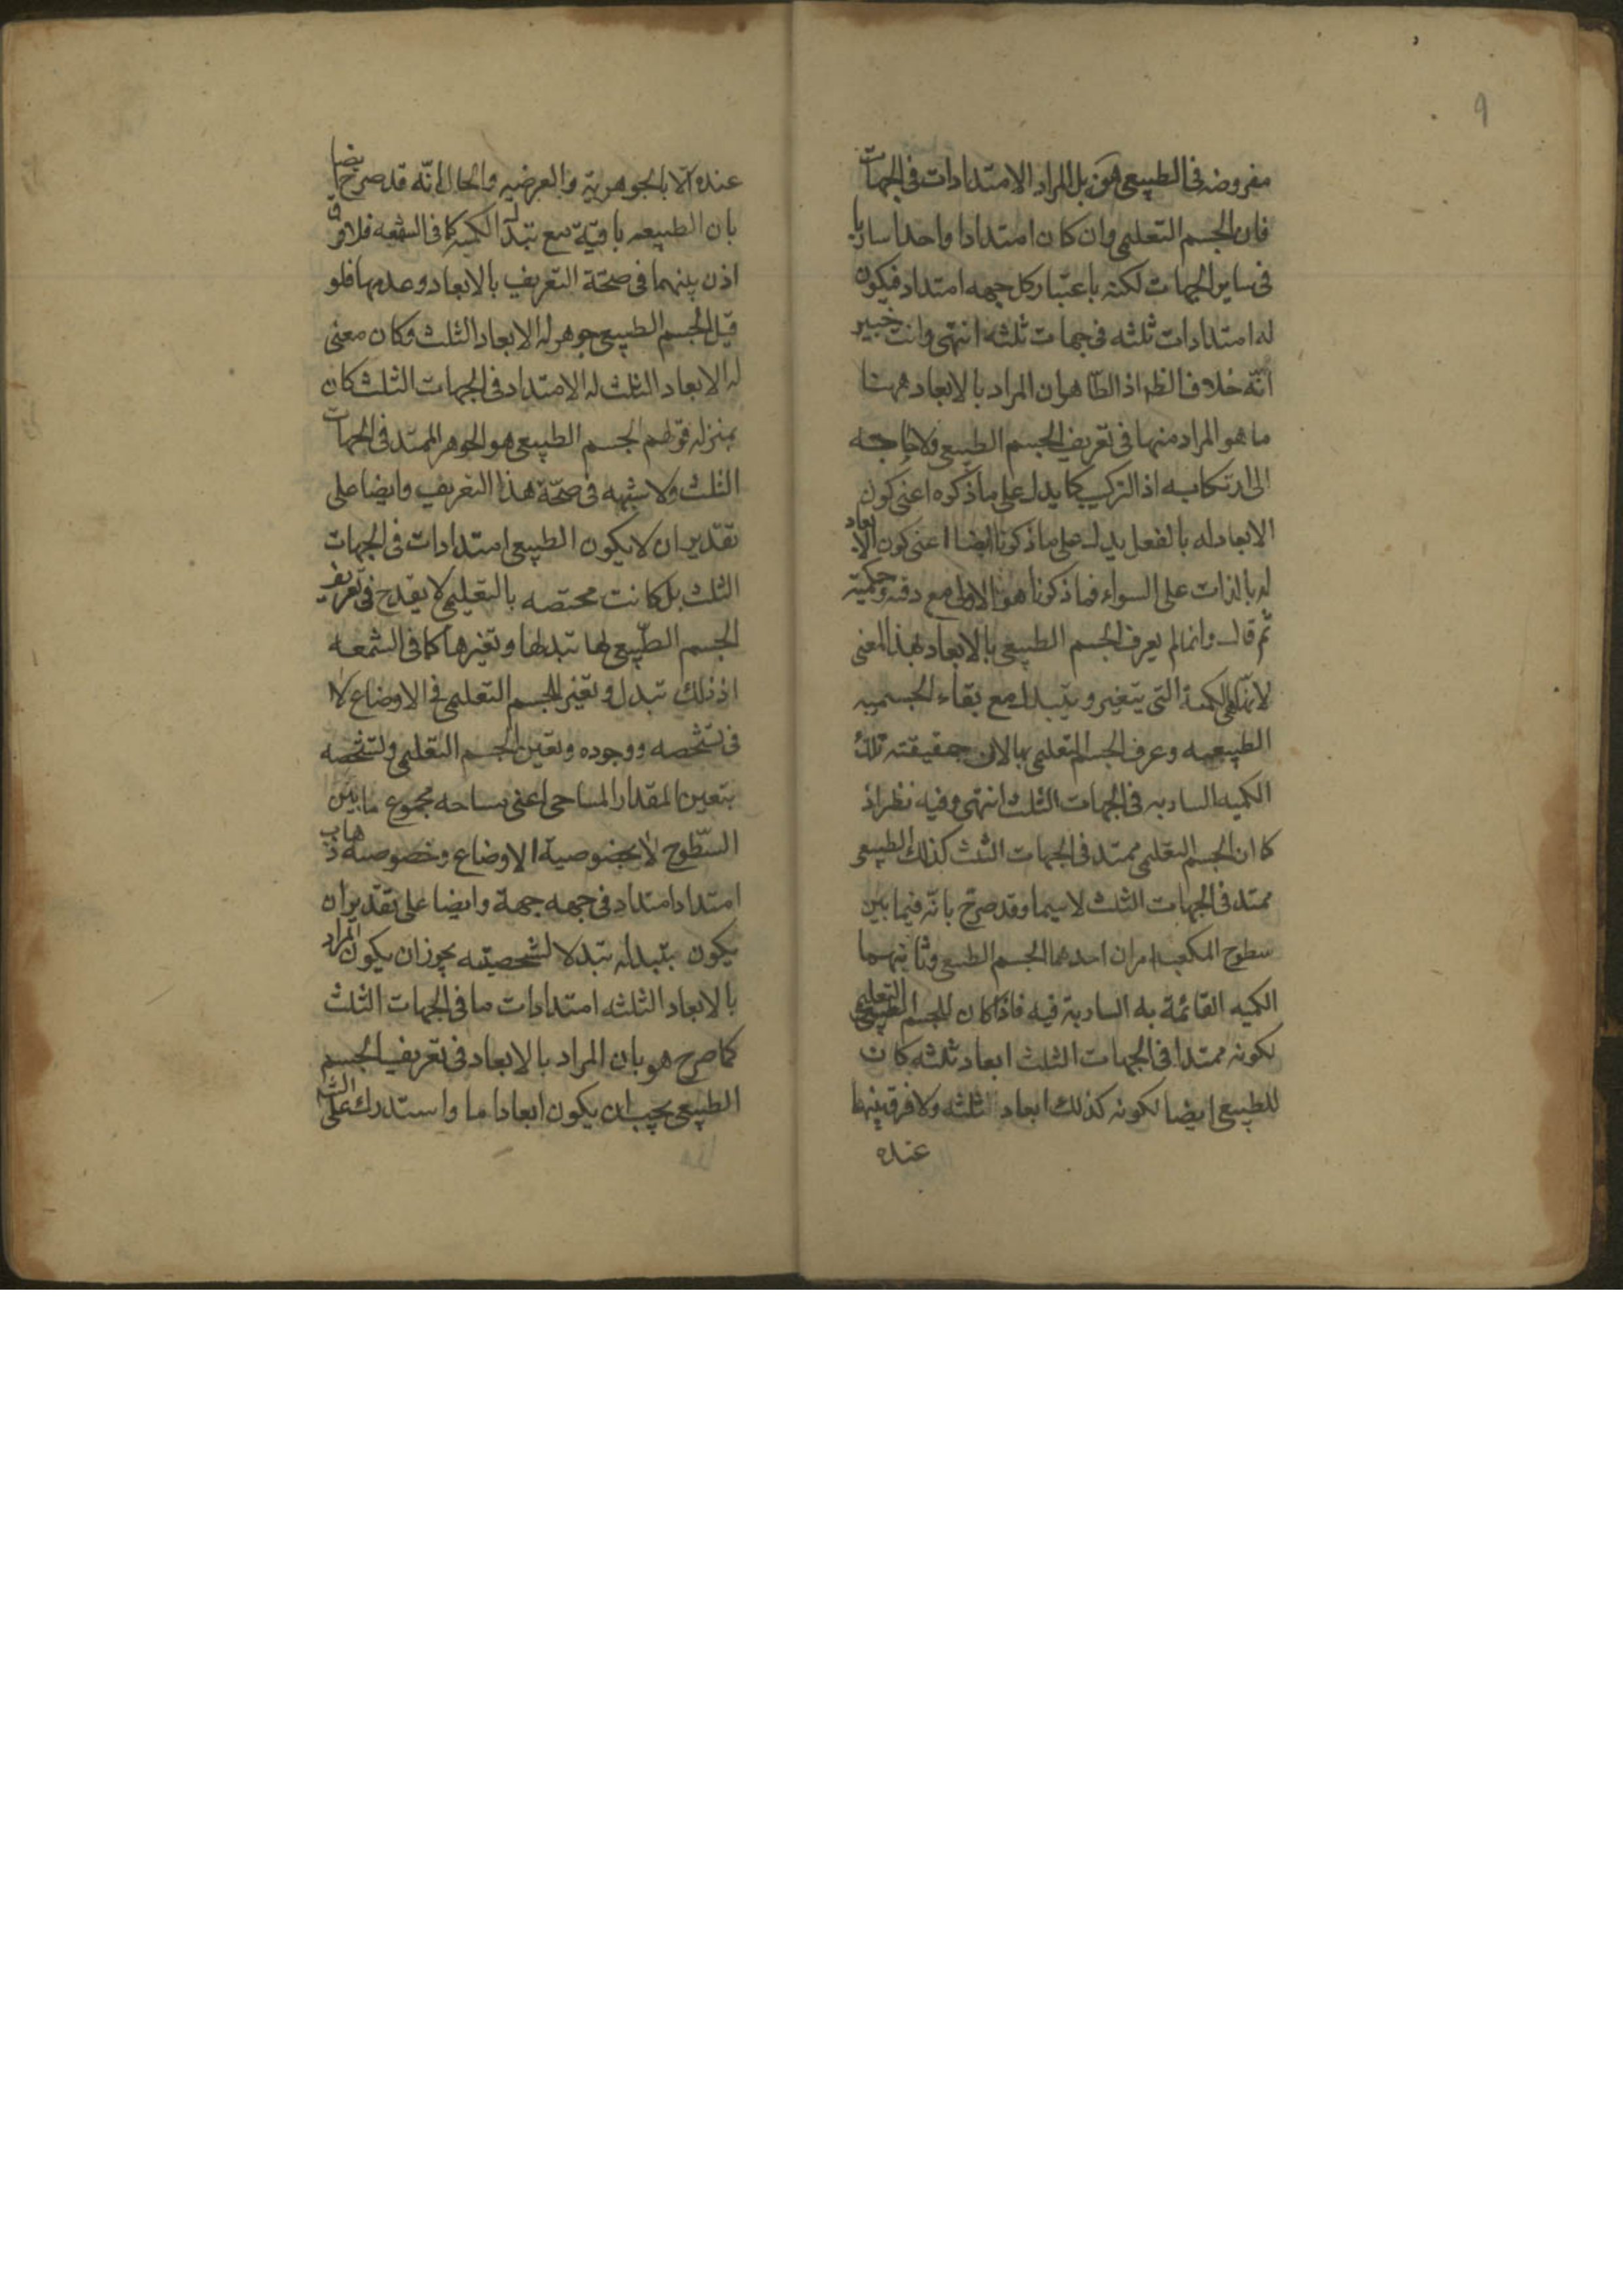 ٩
مفروضه فى الطبيعى هو بل المراد الامتدادات فى الجهات
فان الجسم التعليمى وان كان امتدادا واحدا ساريا
فى ساير الجهات لكنه باعتبار كل جهه امتداد فيكون
له امتدادات ثلثه فى جهات ثلثه انتهى وانت خبير
انّه خلاف الظ اذ الظاهر ان المراد بالابعاد ههنا
ما هو المراد منها فى تعريف الجسم الطبيعى ولا حاجه
الى ارتكابه اذ التركيب كما يدل على ما ذكره اعنى كون
الابعاد له بالفعل يدل على ما ذكرنا ايضا اعنى كون الابعاد
له بالذات على السواء فما ذكرنا هو الاولى مع دقته وحكميته
ثم قال وانما لم يعرف الجسم الطبيعى بالابعاد بهذا المعنى
لانها هى الكمية التى يتغير و يتبدل مع بقاء الجسميه
الطبيعيه وعرف الجسم التعليمى بها لان حقيقته تلك
الكميه الساريه فى الجهات الثلث انتهى وفيه نظر اذ
كما ان الجسم التعليمى ممتد فى الجهات الثلث كذلك الطبيعى
ممتد فى الجهات الثلث لاسيما وقد صرّح بانّه فيما بين
سطوح المكعب امران احدهما الجسم الطبيعى وثانيهما
الكميه القائمة به السارية فيه فاذا كان للجسم التعليمى
لكونه ممتدا فى الجهات الثلث ابعاد ثلثه كان
للطبيعى ايضا لكونه كذلك ابعاد ثلثه ولا فرق بينهما
عنده
عنده الا بالجوهرية والعرضيه والحال انّه قد صرح ايضا
بان الطبيعه باقية مع تبدل الكميه كما فى الشمعه فلا فرق
اذن بينهما فى صحّة التعريف بالابعاد وعدمها فلو
قيل الجسم الطبيعى جوهر له الابعاد الثلث وكان معنى
له الابعاد الثلث له الامتداد فى الجهات الثلث كان
بمنزله قولهم الجسم الطبيعى هو الجوهر الممتد فى الجهات
الثلث ولا شبهه فى صحّة هذا التعريف وايضا على
تقدير ان لا يكون الطبيعى امتدادات فى الجهات
الثلث بل كانت مختصه بالتعليمى لا يقدح فى تعريف
الجسم الطبيعى بها تبدلها وتغيرها كما فى الشمعه
اذ ذلك تبدل وتغير للجسم التعليمى فى الاوضاع لا
فى تشخصه ووجوده وتعين الجسم التعليمى وتشخصه
بتعين المقدار المساحى اعنى مساحه مجموع ما بين
السّطوح لا بخصوصية الاوضاع وخصوصيه ذهاب
امتداد امتداد فى جهه جهة وايضا على تقدير ان
يكون بتبدله تبدلا لشخصيته يجوز ان يكون المراد
بالابعاد الثلثه امتدادات ما فى الجهات الثلث
كما صرح هو بان المراد بالابعاد فى تعريف الجسم
الطبيعى يجب ان يكون ابعادا ما واستدرك على